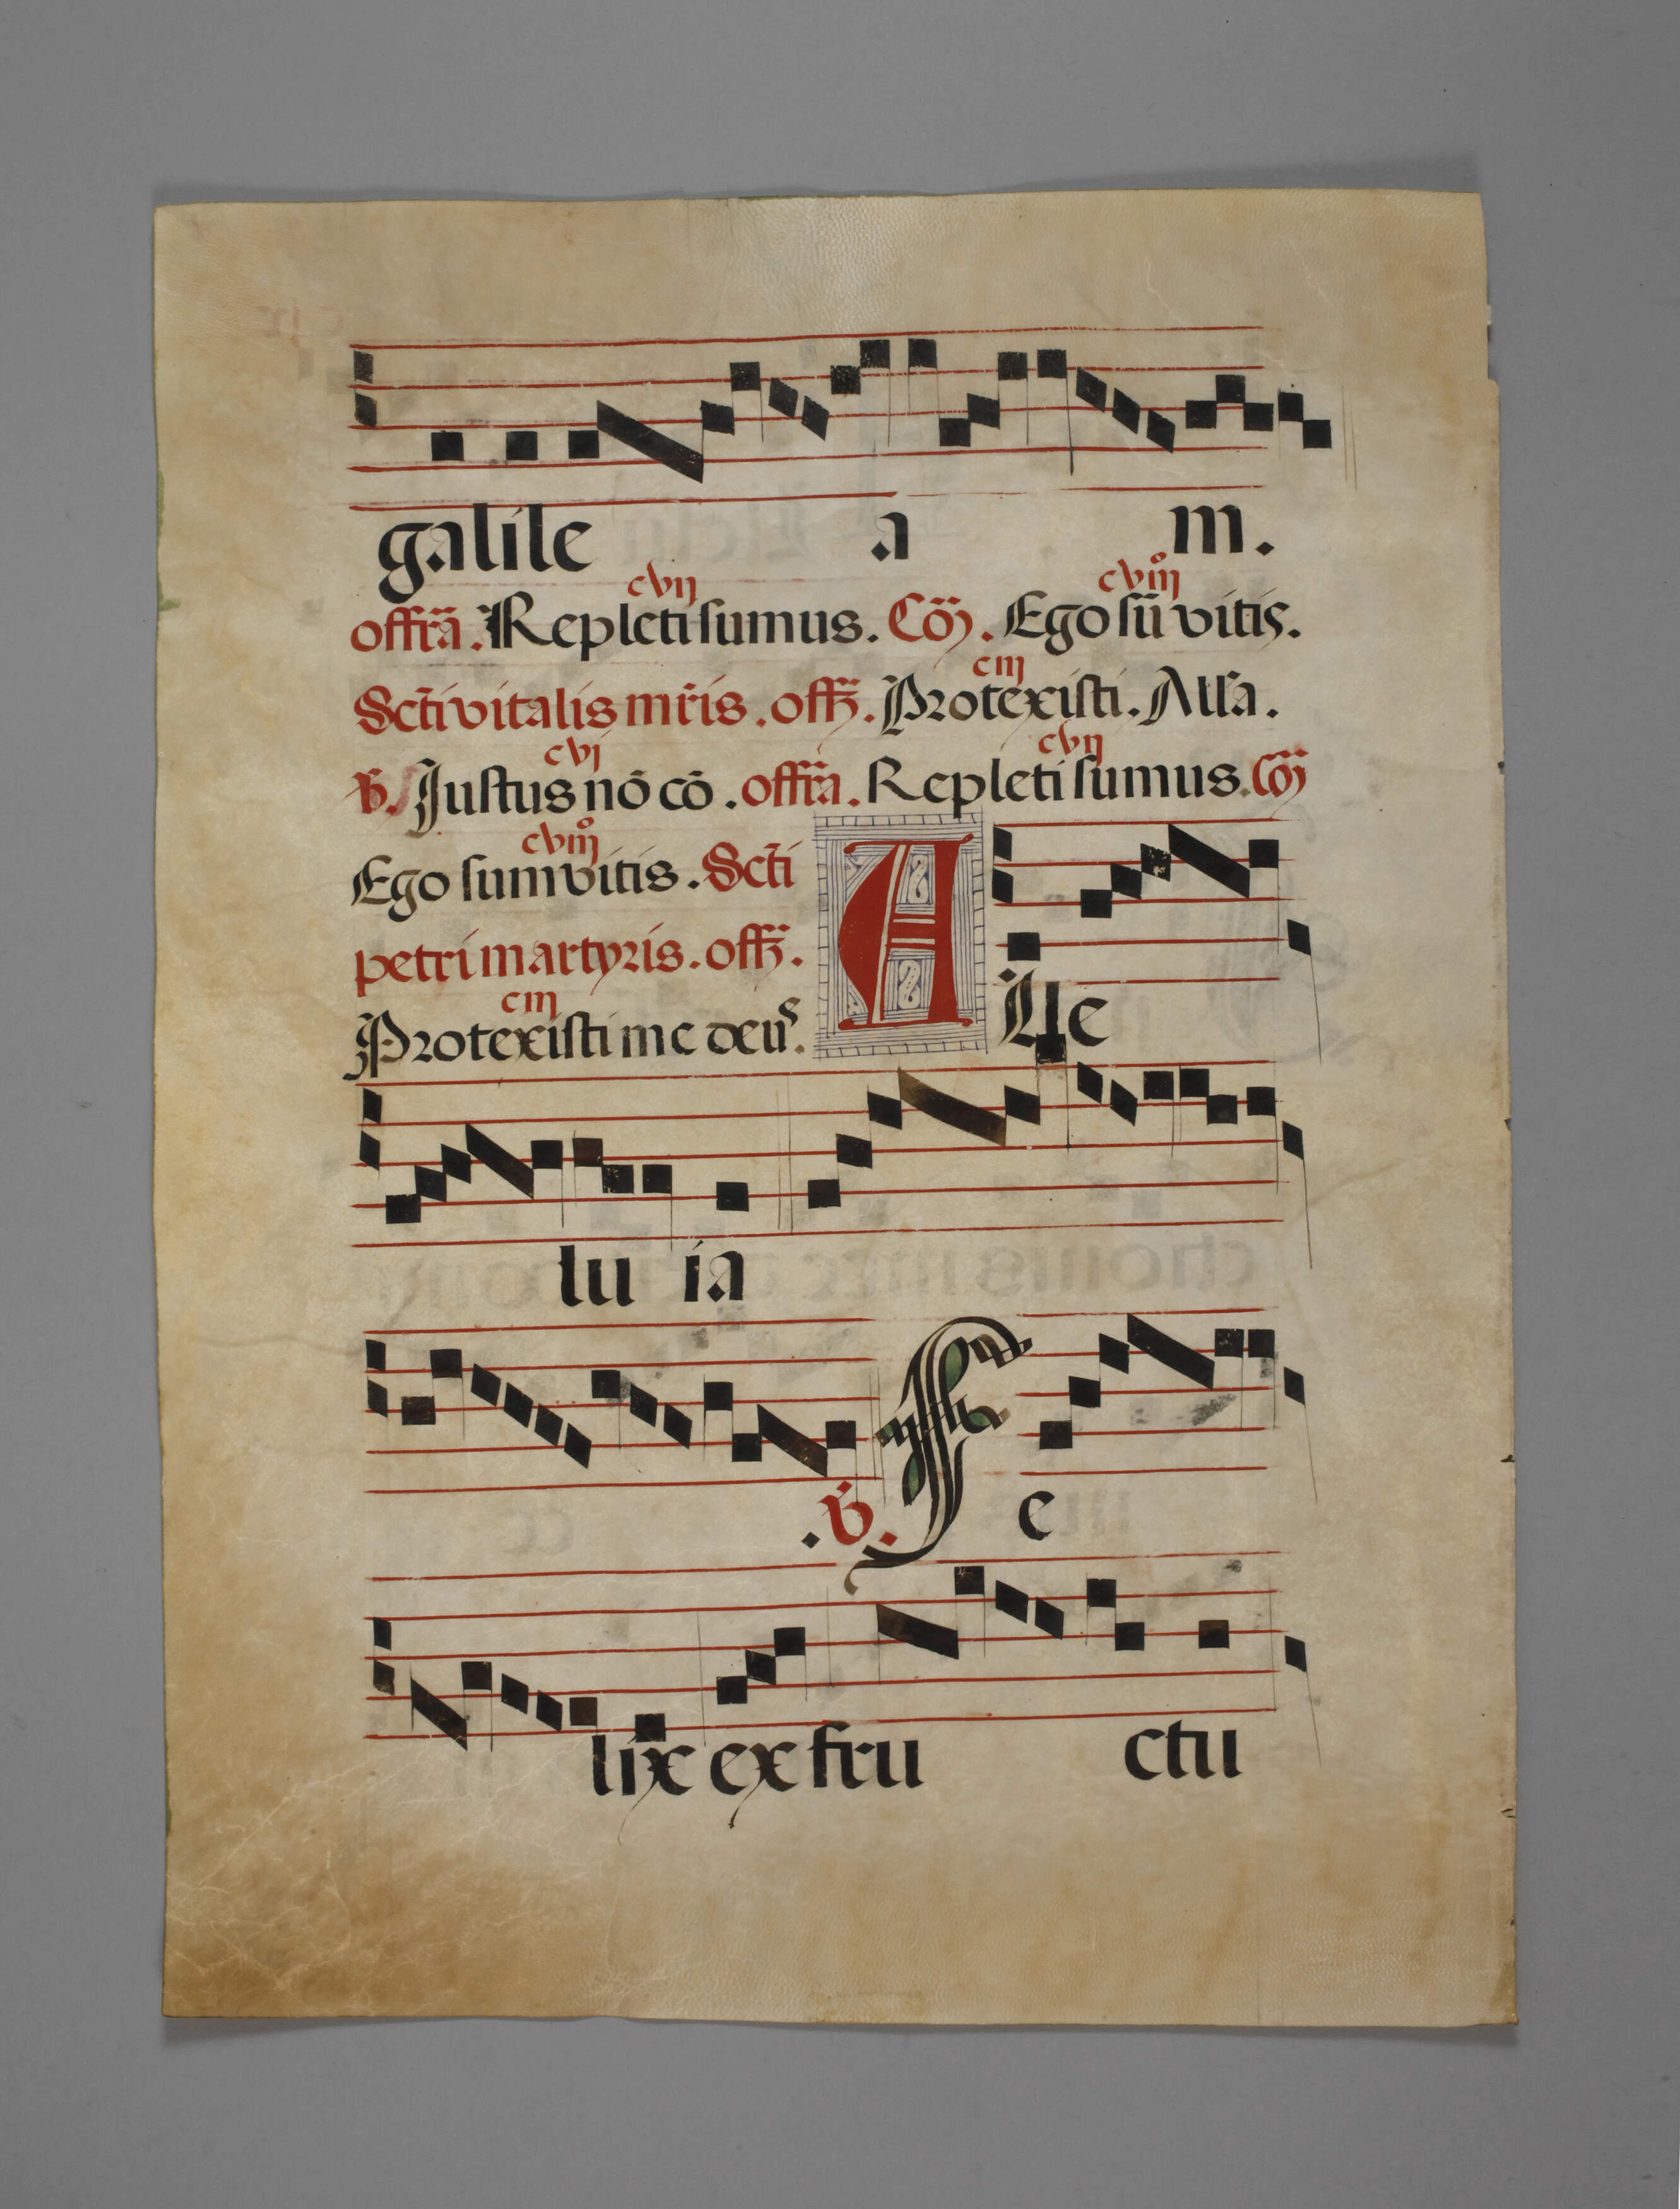 galile a m.
cvij cviijͦ
offr̃a. Repleti sumus. Cõ. Ego sũ vitis.
ciij
Sc̃ti vitalis mr̃is. off̃. Protexisti. All̃a.
cvj cvij
℣. Justus nō cō. offr̃a. Repleti sumus. Cõ
cviijͦ
Ego sum vitis. Sc̃ti
petri martyris. off̃.
ciij
Protexisti me deus.
A lle
lu ia
.℣. F e
lix ex fru ctu